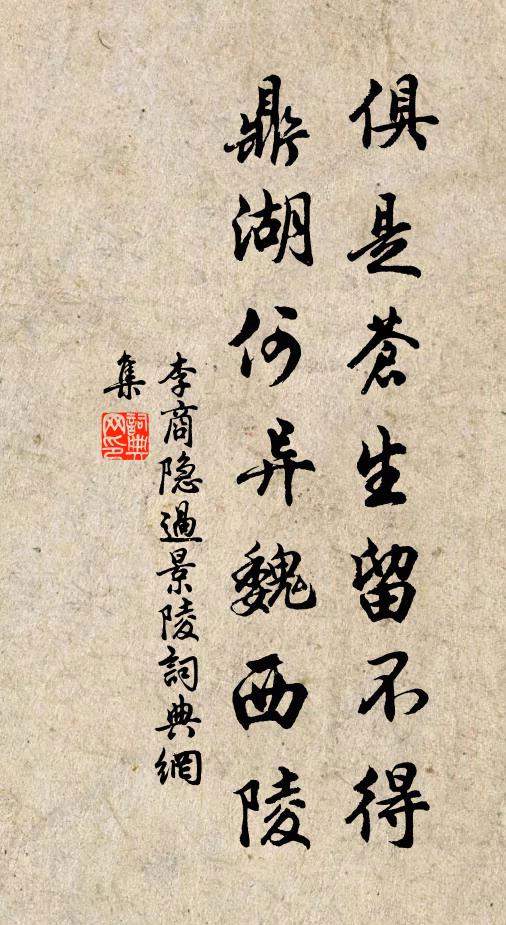 俱是蒼生留不得
鼎湖何异魏西陵
李商隐過景陵詞典網
集
詞典
网印